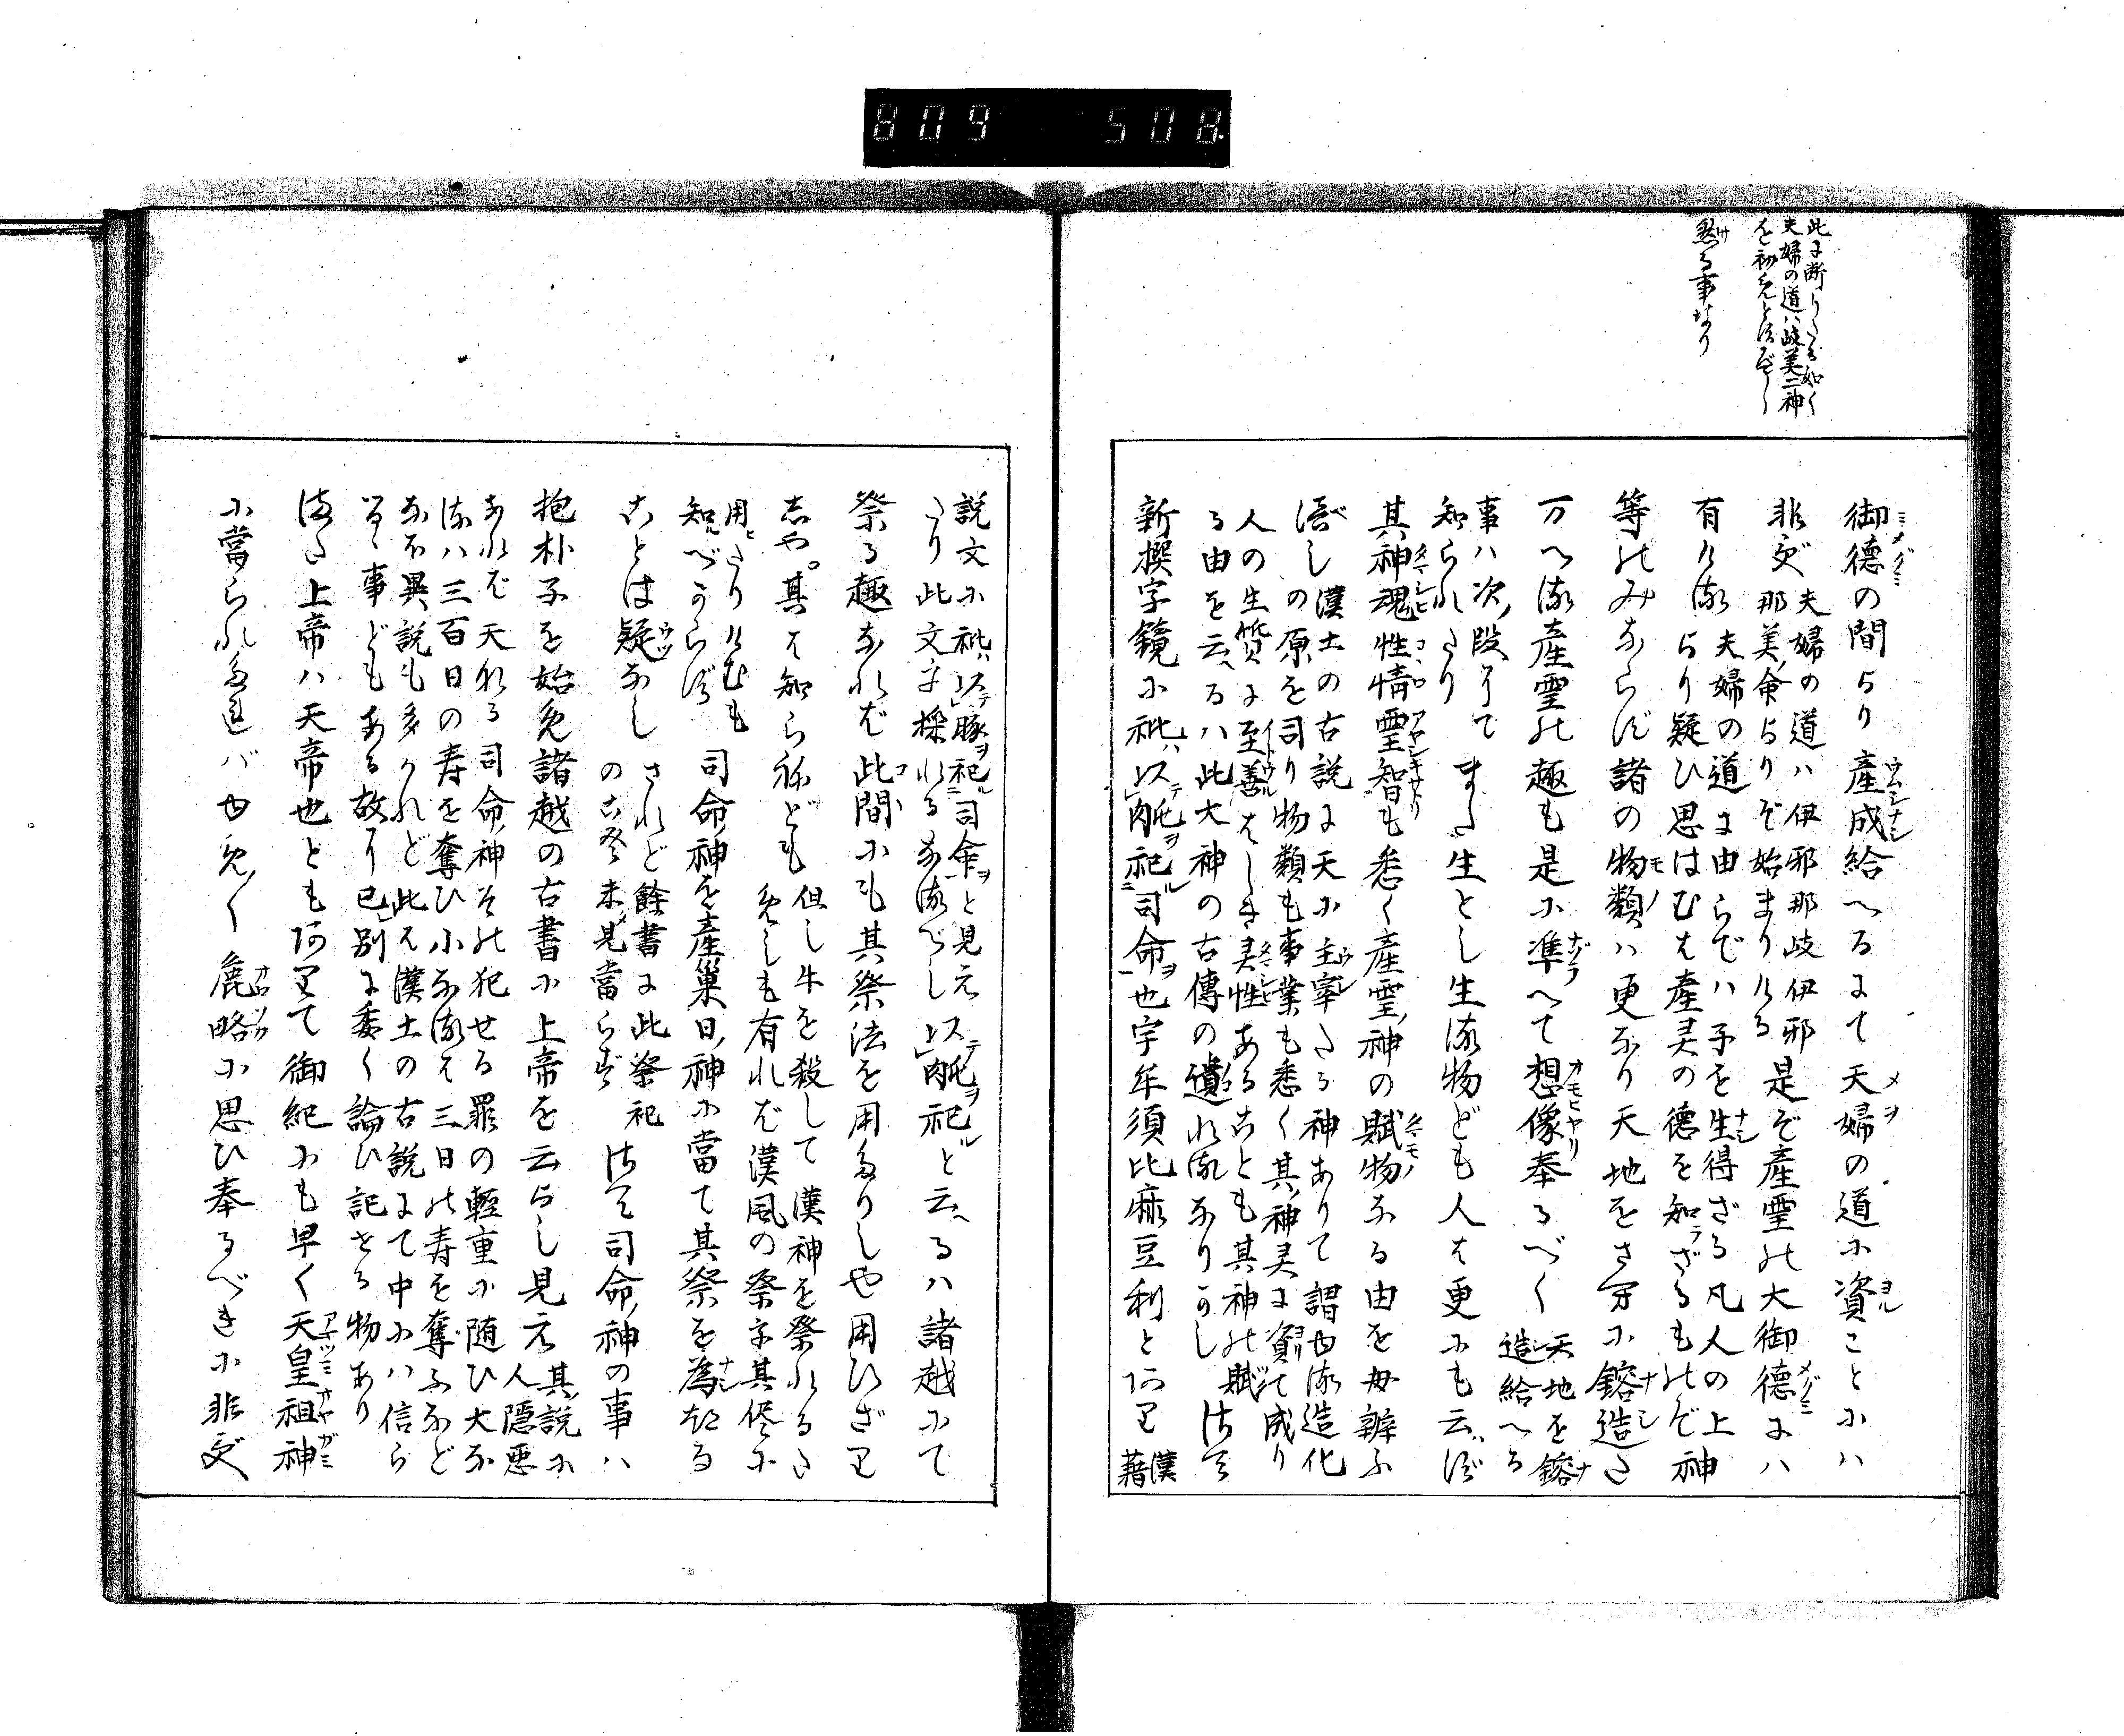 809 508
此に断りたる如く
夫婦の道ハ岐美二神
を初えとすべし
然る事なり
御徳の間より産成給へるにて夫婦の道に資ことにハ
非ず
夫婦の道ハ伊邪那岐伊邪
那美命よりぞ始まりける
是ぞ産霊の大御徳にハ
有ける
夫婦の道に由らでハ子を生得ざる凡人の上
より疑ひ思はむは産灵の徳を知ざるものぞ神
等のみならず諸の物類ハ更なり天地をさ分に鎔造た
万へる産霊の趣も是に準へて想像奉るべく
天地を鎔
造給へる
事ハ次段にて
知られたり
また生とし生る物ども人は更にも云ず
其神魂性情霊智も悉く産霊神の賦物なる由を毋辨ふ
べし
漢土の古説に天に主宰たる神ありて謂ゆる造化
の原を司り物類も事業も悉く其神灵に資て成り
人の生質に至善はしき灵性あることも其神の賦
る由を云るハ此大神の古傳の遺れるなりかし
さて
新撰字鏡に祉ハ以肫祀司命也字年須比麻豆利とあり
漢
藉
説文に祉ハ以豚祀司命と見え以肫祀と云るハ諸越にて
たり此文字採れるなるべし
祭る趣なれば此間にも其祭法を用たりしや用ひざり
しや其は知らねども
但し牛を殺して漢神を祭れるた
めしも有れば漢風の祭字其侭に
用たりけむも
知べからず
司命神を産巣日神に當て其祭を為ける
ことは疑なし
されど餘書に此祭祀
の古発未見當らず
さて司命神の事ハ
抱朴子を始め諸越の古書に上帝を云らし見え
其説に
人隠悪
あれば天なる司命神その犯せる罪の軽重に随ひ大な
るハ三百日の寿を奪ひ小なるは三日の寿を奪ふなど
なほ異説も多かれど此は漢土の古説にて中にハ信ら
るゝ事どもある故に已別に委く論ひ記せる物あり
また上帝ハ天帝也とも阿りて御紀にも早く天皇祖神
に當られたれバゆめ〱麁略に思ひ奉るべきに非ず